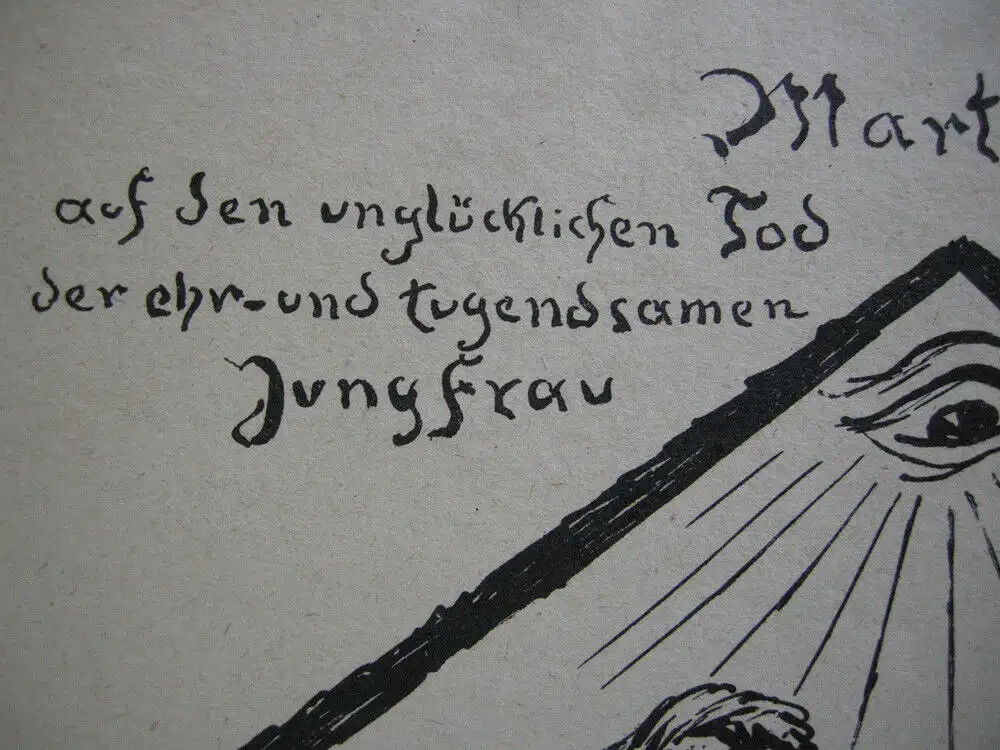 Mart
auf den unglücklichen Tod
der ehr-und tugendsamen
Jungfrau